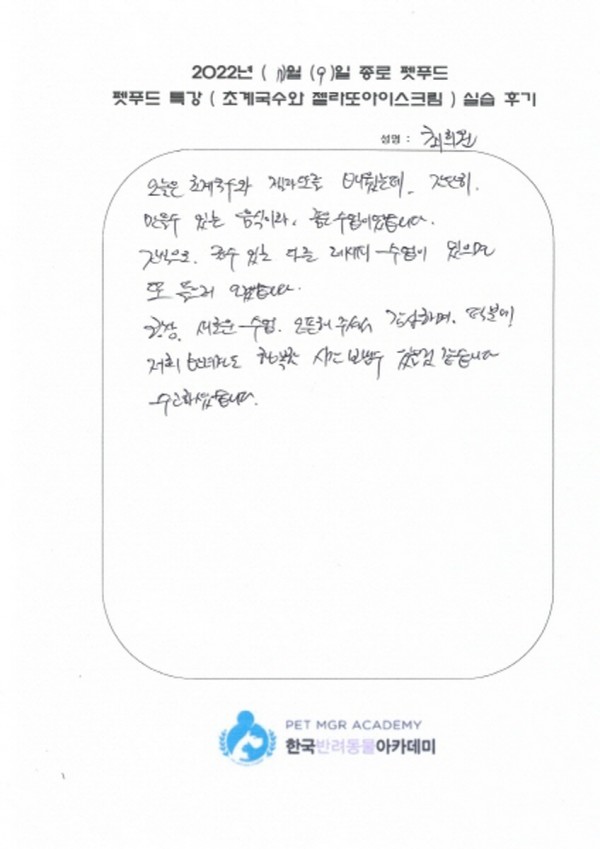 2022년 ( 11)월 (9)일 종로 펫푸드
펫푸드 특강 ( 초계국수와 젤라또아이스크림 ) 실습 후기
성명 : 최희원
오늘은 초계국수와 젤라또를 배웠는데. 간단히.
만들수 있는 음식이라, 좋은 수업이었습니다.
수 있는 다른 레시피 수업이 있으면
또 듣고 싶습니다.
새로운 수업. 주셔서 감사하며, 덕분에
저희 행복한 시간 보낼수 있을것 같습니다
수고하셨습니다.
PET MGR ACADEMY
한국반려동물아카데미